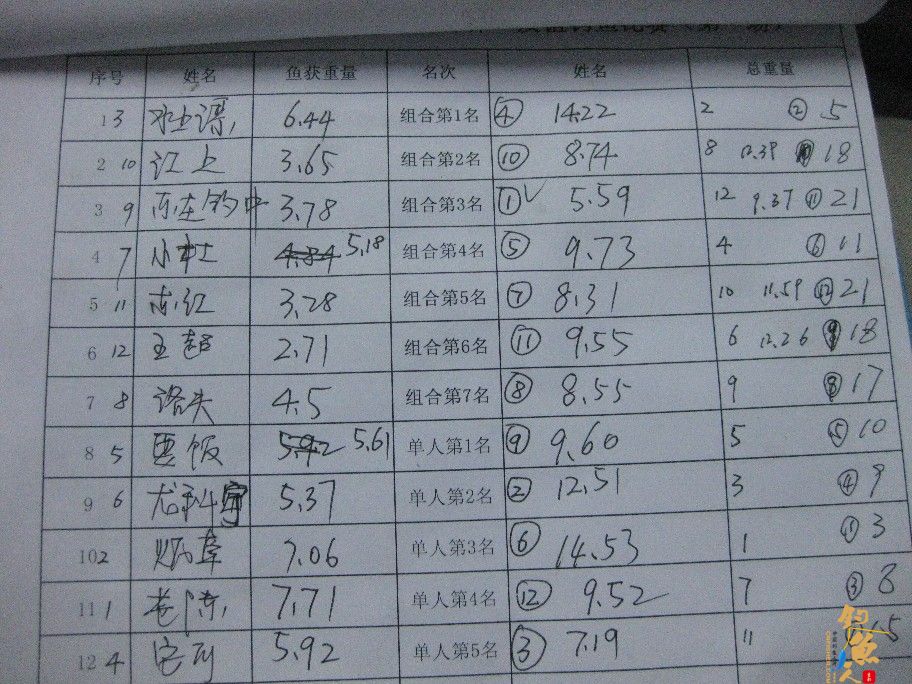 序号 姓名 鱼获重量 名次 姓名 总重量
1 3 水上漂 6.44 组合第1名 ④ 14.22 2 ② 5
2 10 江上 3.65 组合第2名 ⑩ 8.74 8 18
3 9 3.78 组合第3名 ①√ 5.59 12 9.37 ⑪ 21
4 7 小杜 5.18 组合第4名 ⑤ 9.73 4 ⑥ 11
5 11 3.28 组合第5名 ⑦ 8.31 10 11.59 ⑫ 21
6 12 王超 2.71 组合第6名 ⑪ 9.55 6 12.26 ⑨ 18
7 8 4.5 组合第7名 ⑧ 8.55 9 ⑧ 17
8 5 要饭 5.61 单人第1名 ⑨ 9.60 5 ⑤ 10
9 6 5.37 单人第2名 ② 12.51 3 ④ 9
10 2 7.06 单人第3名 ⑥ 14.53 1 ① 3
11 1 老陈 7.71 单人第4名 ⑫ 9.52 7 ③ 8
12 4 5.92 单人第5名 ③ 7.19 11 15
钓鱼人